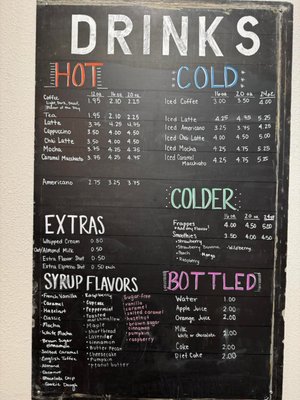 DRINKS
HOT
12 oz 16 oz 20 oz
Coffee 1.95 2.10 2.25
Light, Dark, Decaf,
Flavor of the Day
Tea 1.95 2.10 2.25
Latte 3.75 4.25 4.75
Cappuccino 3.50 4.00 4.50
Chai Latte 3.50 4.00 4.50
Mocha 3.75 4.25 4.75
Caramel Macchiato 3.75 4.25 4.75
Americano 2.75 3.25 3.75
COLD
16 oz 20 oz 24 oz
Iced Coffee 3.00 3.50 4.00
Iced Latte 4.25 4.75 5.25
Iced Americano 3.25 4.25
Iced Chai Latte 4.00 4.50 5.00
Iced Mocha 4.25 4.75 5.25
Iced Caramel
Macchiato 4.25 4.75 5.25
COLDER
16 oz 20 oz 24 oz
Frappes 4.00 4.50 5.00
*Add any flavor!
Smoothies 3.50 4.00 4.50
-Strawberry
-Strawberry Banana -Wildberry
-Peach -Mango
-Raspberry
EXTRAS
Whipped Cream 0.50
Oat/Almond Milk 0.50
Extra Flavor Shot 0.50
Extra Espresso Shot 0.50 each
SYRUP FLAVORS
French Vanilla
Caramel
Hazelnut
Classic
Mocha
White Mocha
Brown Sugar
Cinnamon
Salted Caramel
English Toffee
Almond
Coconut
Chocolate Chip
Cookie Dough
Raspberry
Cupcake
Peppermint
Toasted
Marshmallow
Maple
Shortbread
Lavender
Cinnamon
Butter Pecan
Cheesecake
Pumpkin
Peanut butter
Sugar-free
vanilla
caramel
salted caramel
hazelnut
brown sugar
cinnamon
pumpkin
raspberry
BOTTLED
Water 1.00
Apple Juice 2.00
Orange Juice 2.00
Milk 2.00
White or chocolate
Coke 2.00
Diet Coke 2.00